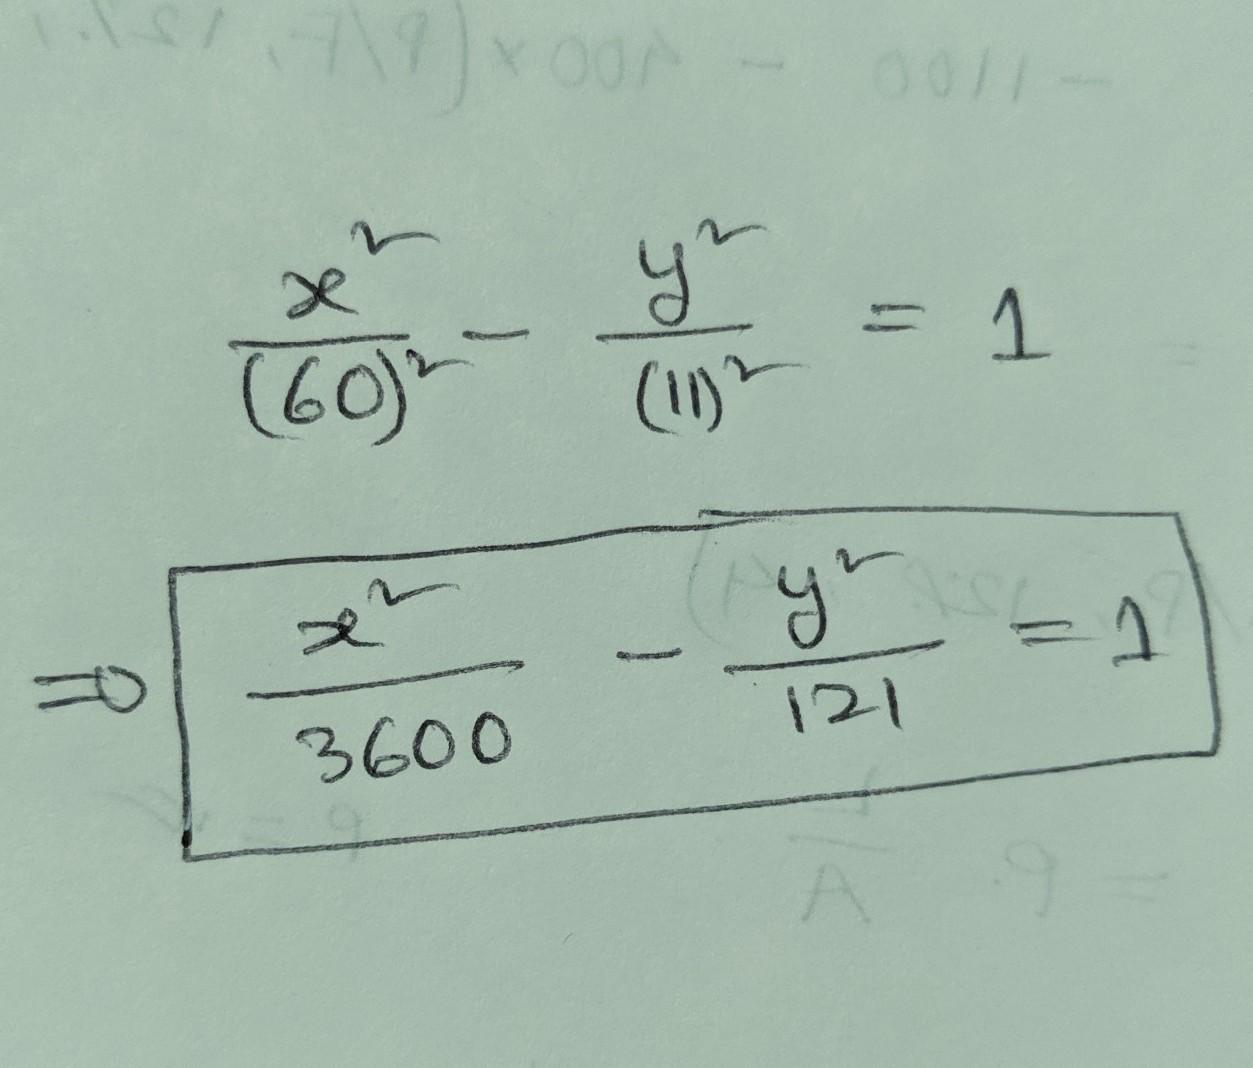 x²/(60)² - y²/(11)² = 1
⇒ x²/3600 - y²/121 = 1